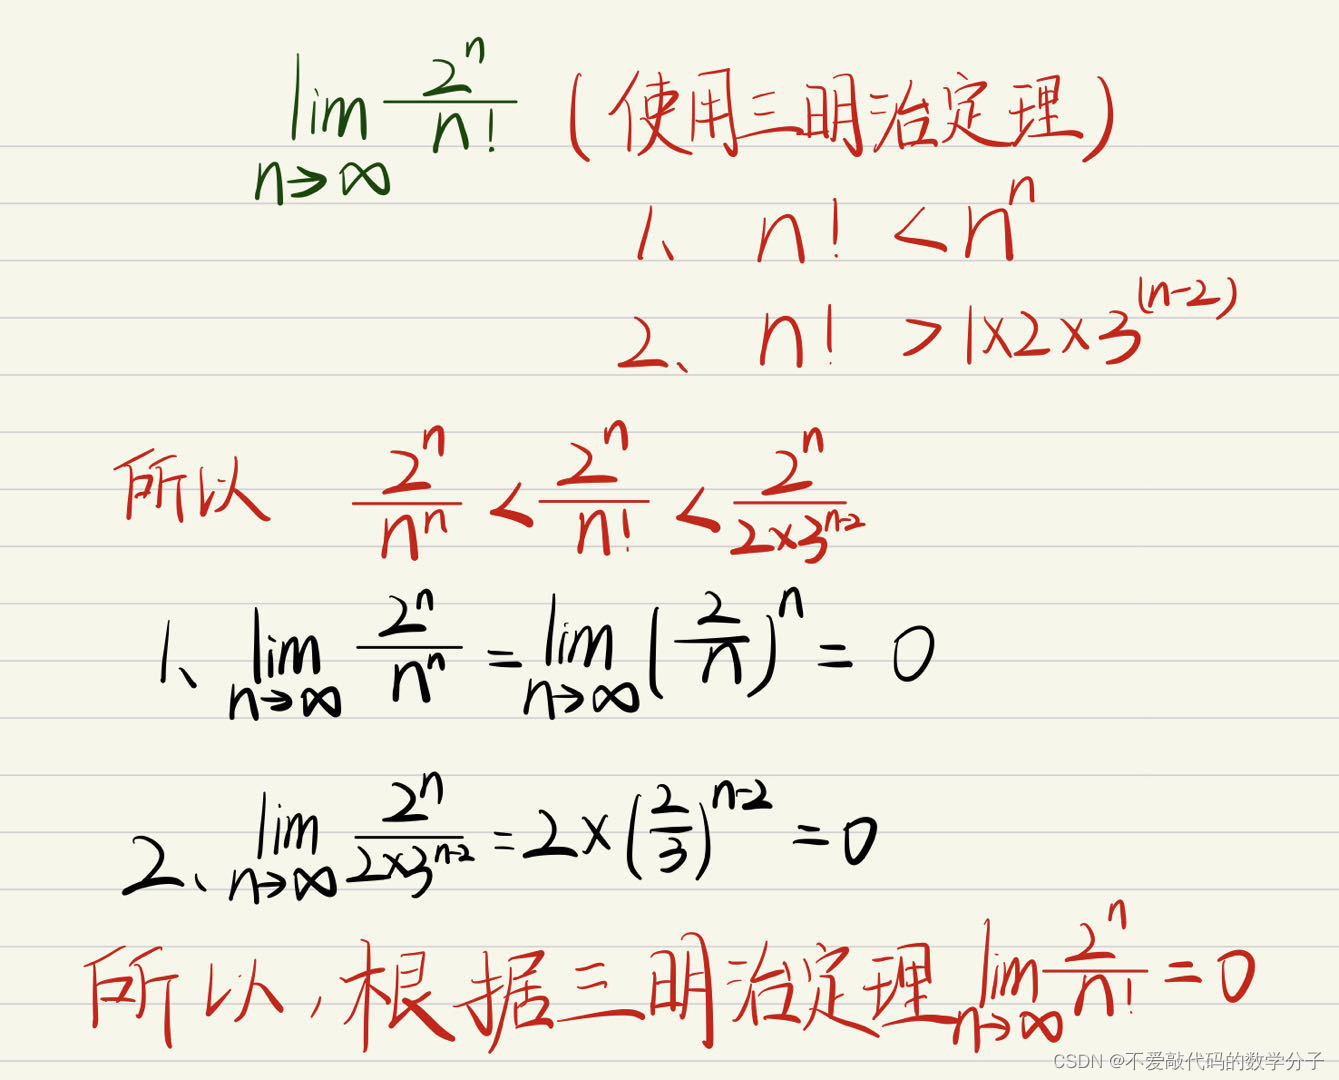 lim n→∞ 2^n/n! (使用三明治定理)
1、 n! < n^n
2、 n! > 1×2×3^(n-2)
所以 2^n/n^n < 2^n/n! < 2^n/2×3^n-2
1、 lim n→∞ 2^n/n^n = lim n→∞ (2/n)^n = 0
2、 lim n→∞ 2^n/2×3^n-2 = 2×(2/3)^n-2 = 0
所以,根据三明治定理 lim n→∞ 2^n/n! = 0
CSDN @不爱敲代码的数学分子